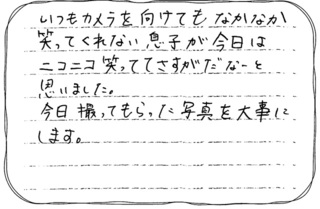 いつもカメラを向けてもなかなか
笑ってくれない息子が今日は
ニコニコ笑っててさすがだなーと
思いました。
今日撮ってもらった写真を大事に
します。